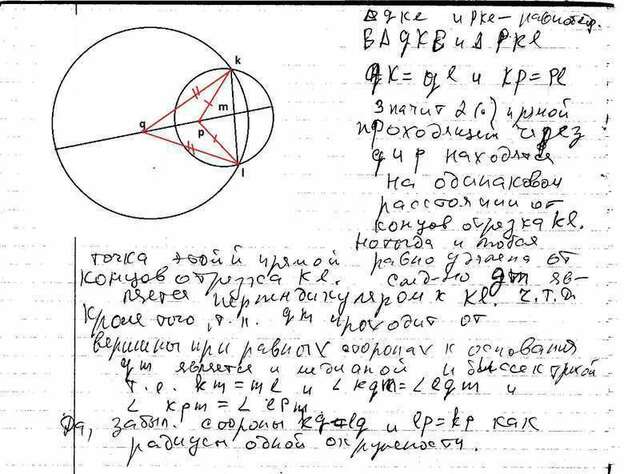 k
m
q
p
l
Δ qke и pke - равнобедр.
В Δ qKE и Δ PKl
qK = ql и KP = Pl
значит 2 (.) прямой
проходящий через
q и p находятся
на одинаковом
расстоянии от
концов отрезка Kl.
но тогда и любая
точка этой прямой равно удалена от
концов отрезка Kl. qm яв-
ляется перпендикуляром к Kl. ч.т.д.
Кроме того, т.к. qm проходит от
вершины при равных сторонах к основания
qm является и медианой и биссектрисой
т.е. km = ml и ∠kqm = ∠lqm и
∠ kpm = ∠ lpm
Да, забыл. стороны kq = lq и lp = kp как
радиусы одной окружности.